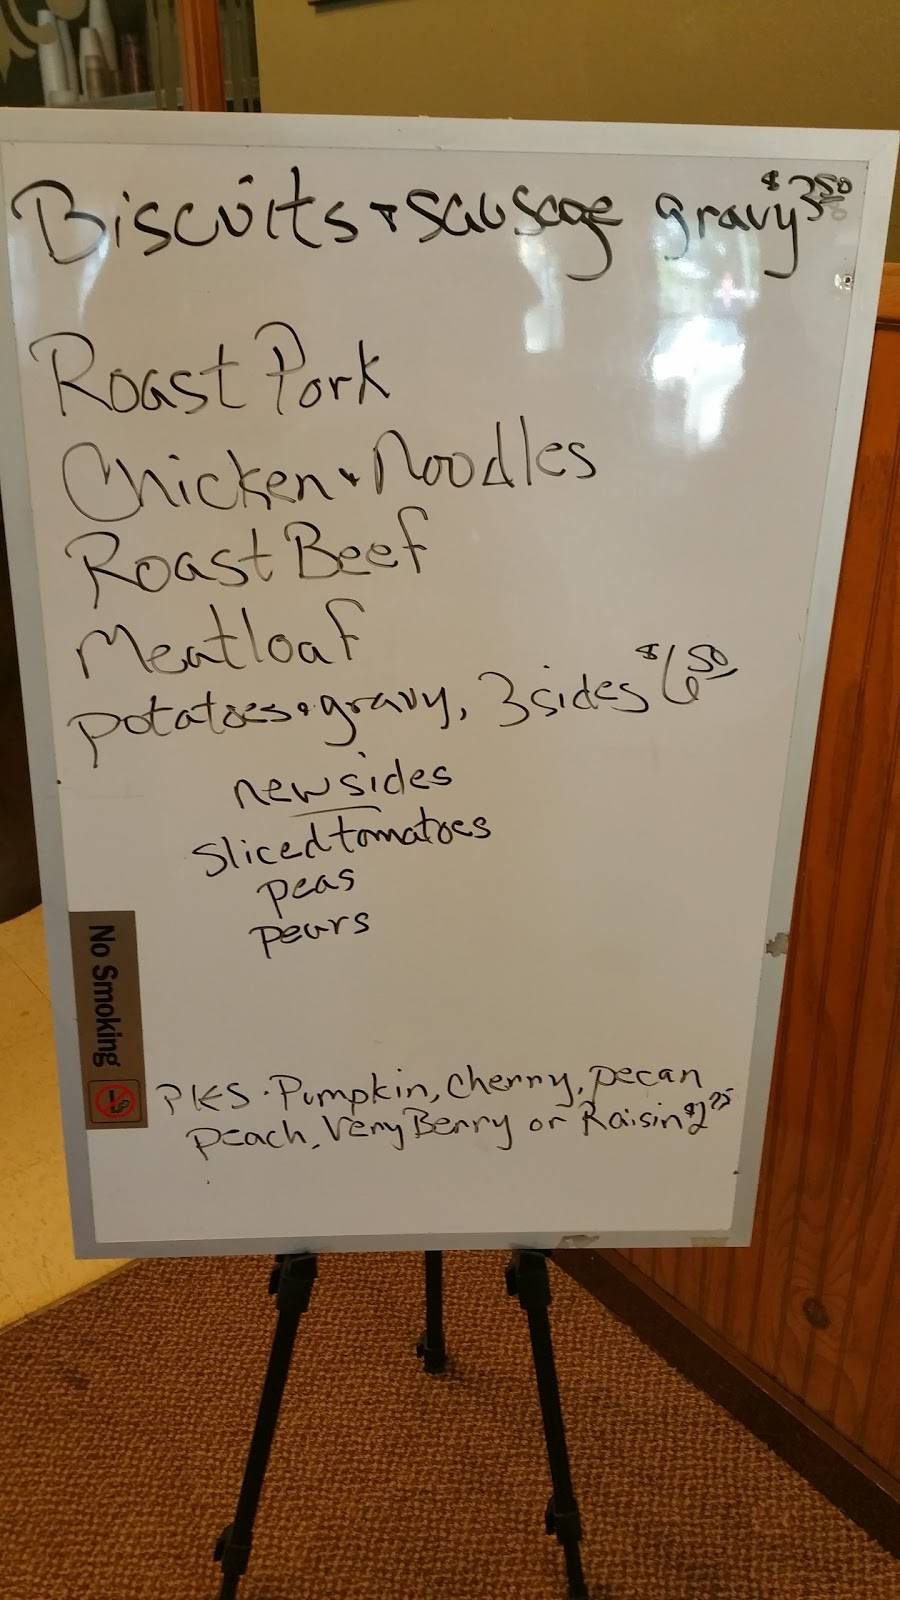 Biscuits + sausage gravy $3.50
Roast Pork
Chicken + Noodles
Roast Beef
Meatloaf
potatoes + gravy, 3 sides $6.50
new sides
Sliced tomatoes
peas
pears
No Smoking
PIES - Pumpkin, Cherry, pecan
peach, Very Berry or Raisin $2.25